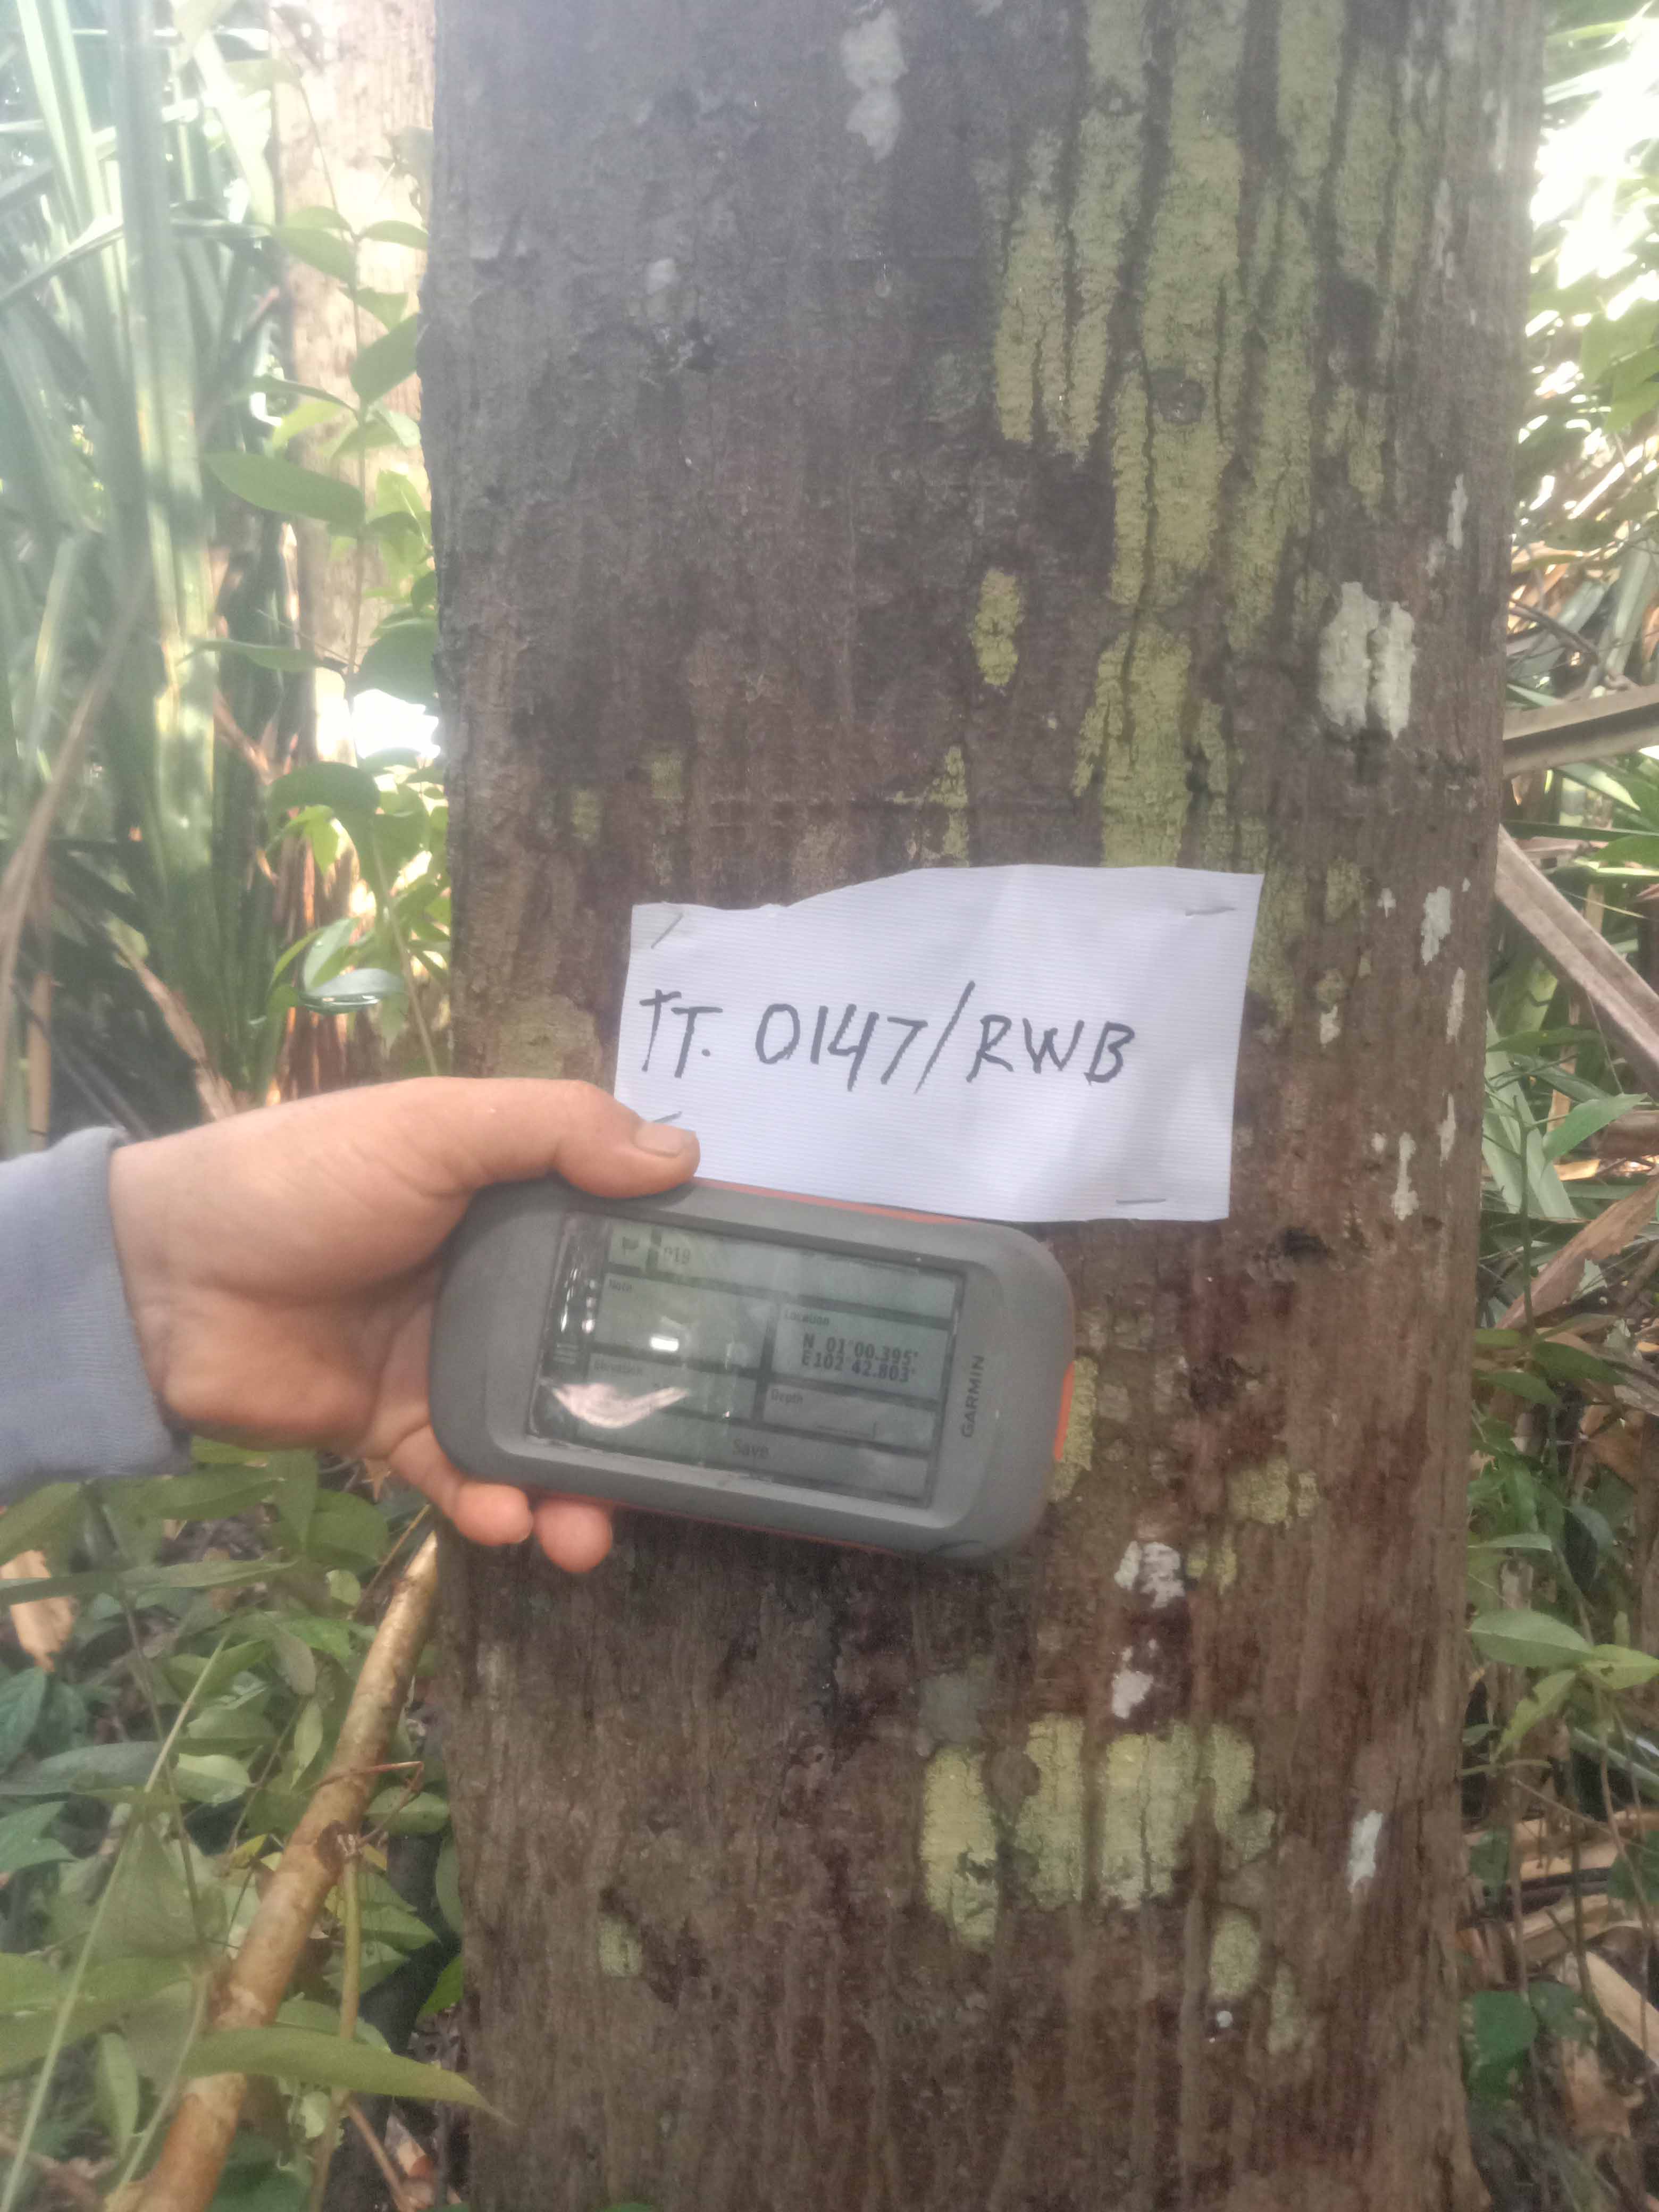 TT. 0147/RWB
Note
Location
N 01°00.395'
E102°42.803'
Elevation
Depth
Save
GARMIN